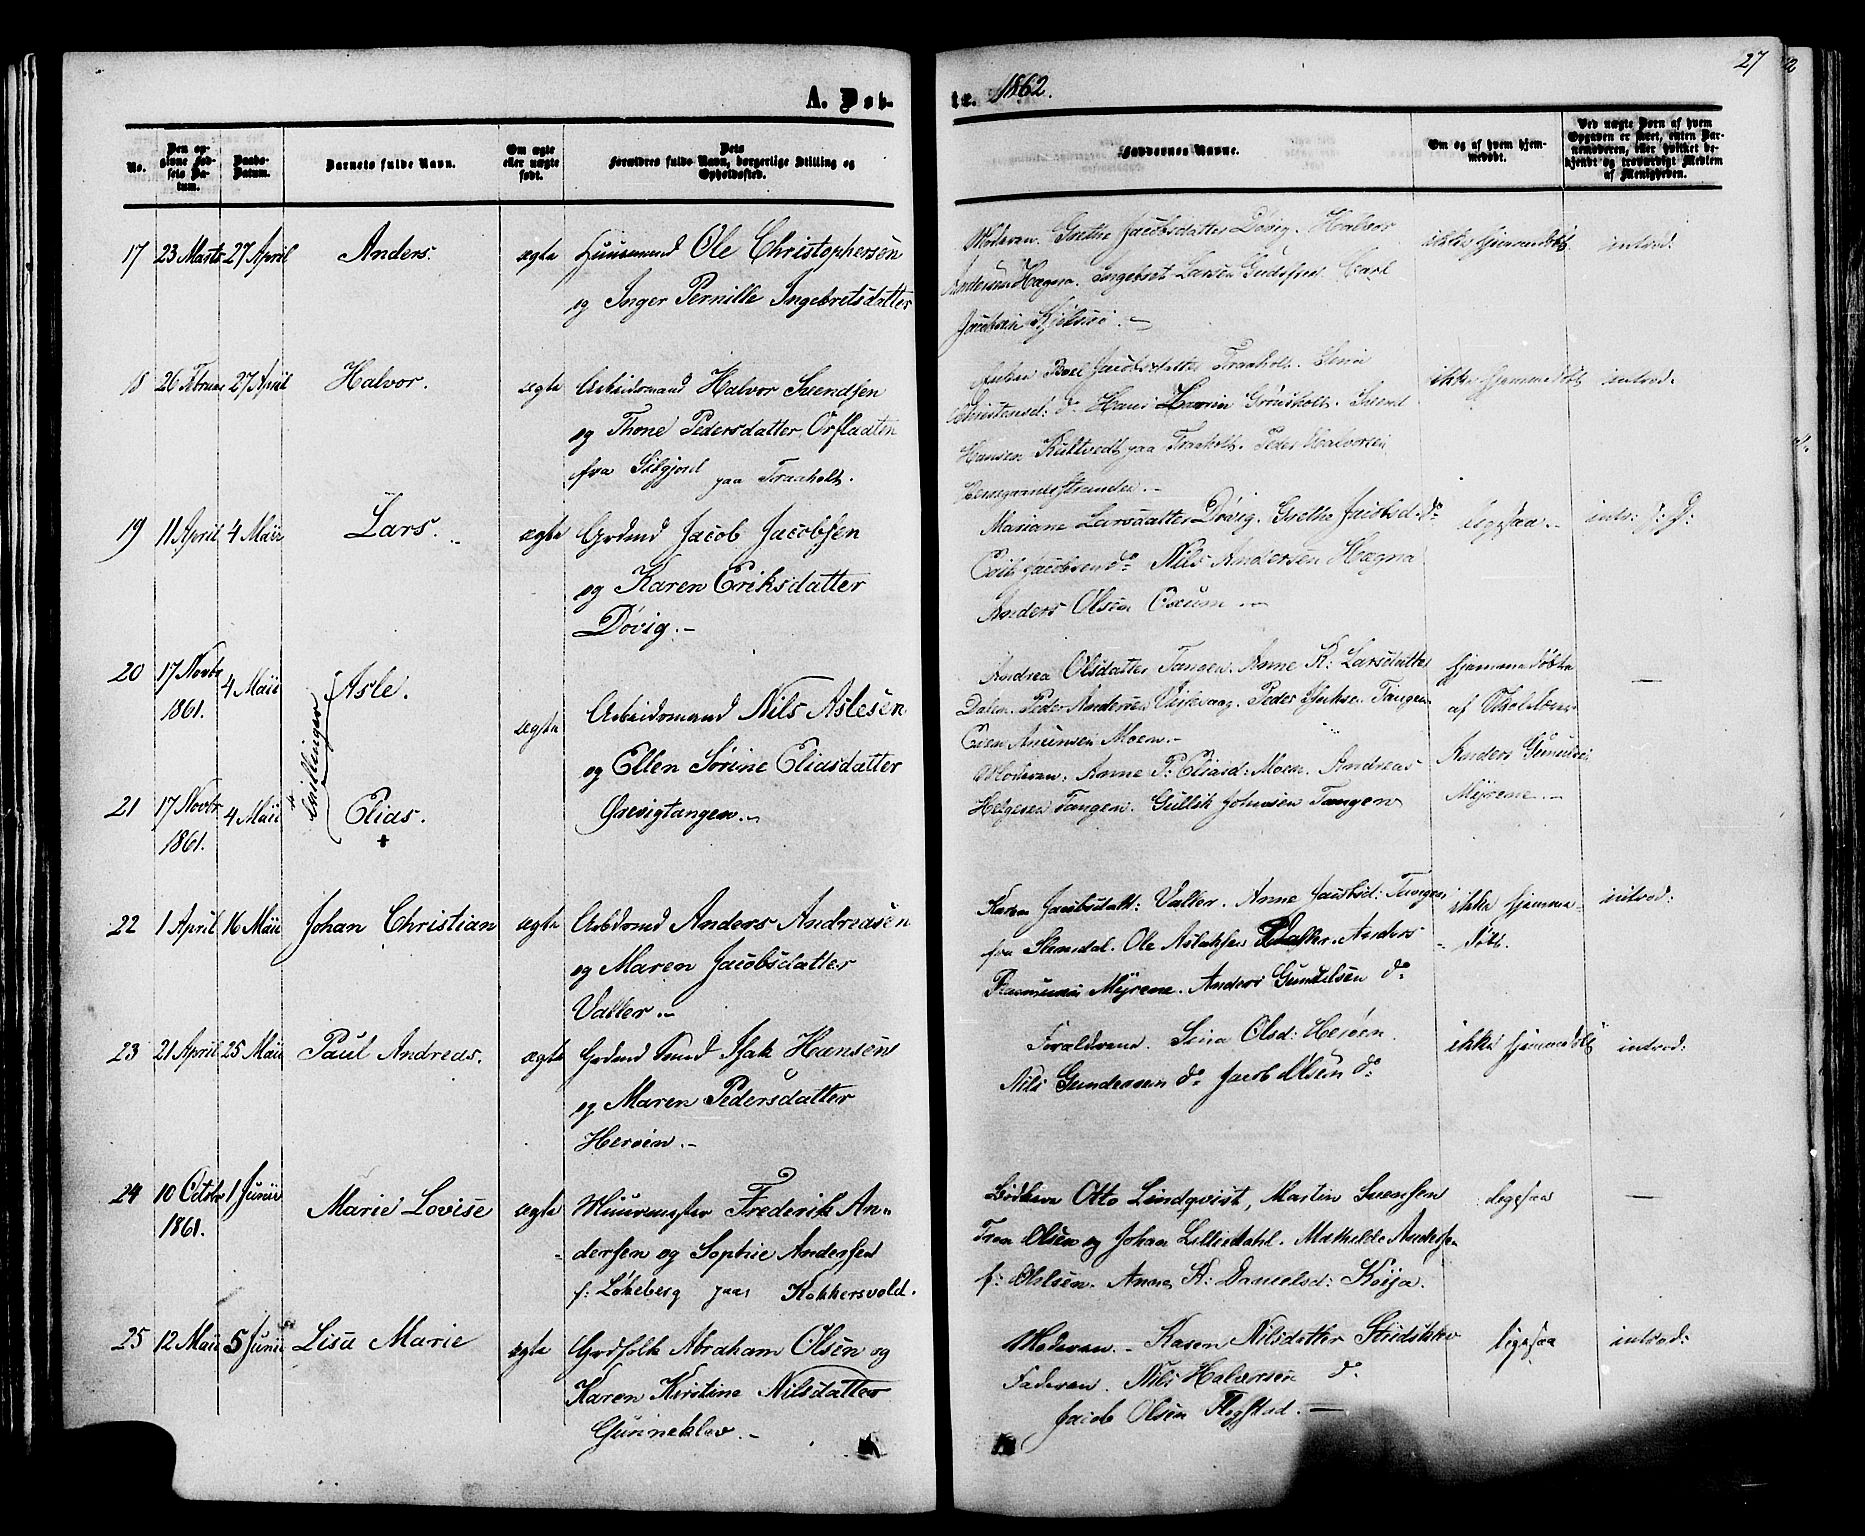 27
A. Døb-
te. 1862.
No.
Den opgivne Fødsels Datum.
Daabs-Datum.
Barnets fulde Navn.
Om ægte eller uægte født.
Dets Forældres fulde Navn, borgerlige Stilling og Opholdssted.
Faddernes Navne.
Om og af hvem hjemmedøbt.
Ved uægte Børn af hvem Opgaven er skeet, enten Barnemoderen, eller hvilket bekjendt og troværdigt Medlem af Menigheden.
17 23 Marts 27 April Anders. ægte Huusmand Ole Christophersen
og Inger Pernille Ingebretsdatter
Moderen. Grethe Jacobsdatter Døvig. Halvor
Andersen Hægna. Ingebret Larsen Carl
Jacobsen
ikke hjemmedøbt introd:
18 26 Februar 27 April Halvor. ægte Arbeidsmand Halvor Svendsen
og Thone Pedersdatter Ørflaaten
fra Silgjord paa Traaholt.
Boel Jacobsdatter Traaholt.
Christensd: do Hans Svend
Hansen Kultvedt paa Traaholt. Peder Halvorsen
ikke hjemmedøbt introd:
19 11 April 4 Maii Lars. ægte Grdmd Jacob Jacobsen
og Karen Eriksdatter
Døvig.-
Mariane Larsdatter Døvig. Grethe Jacobsd. do
Jacobsen do Nils Andersen Hægna
Anders Olsen
ligesaa.
20 17 Novbr 1861. 4 Maii Asle.
Tvillinger
ægte Arbeidsmand Nils Aslesen
og Ellen Sørine Eliasdatter
Grævigtangen.
Andrea Olsdatter Tangen. Anne K: Larsdatter
Dalen. Peder Andersen Virksvaag. Peder Tangen
Moen.-
hjemmedøbte
af
Anders
Myrene.-
—
21 17 Novbr 1861. 4 Maii Elias.
+
Moderen. Anne P: Eliasd: Moen. Andreas
Helgesen Tangen. Gullik Johnsen Tangen
22 1 April 16 Maii Johan Christian ægte Arbdsmd Anders Andreasen
og Maren Jacobsdatter
Valler.-
Karen Jacobsdatt: Valler. Anne Jacobsd: Tangen
fra Skeendal. Ole Aslaksen Valler. Anders
Rasmussen Myrene. Anders Gundelsen do
ikke hjemme-
døbt.
introd:
23 21 April 25 Maii Paul Andreas. ægte Grdmd Isak Hansen
og Maren Pedersdatter
Herøen.-
Forældrene. Sina Olsd: Herøen.
Nils Gundersen do Jacob Olsen do
ikke hjemmedøbt introd:
24 10 Octobr 1861. 1 Junii Marie Lovise ægte Muurmester Frederik An-
dersen og Sophie Andersen
f: Løkeberg paa Kokkersvold.
Otto Lindqvist, Martin Svensen
Olsen og Johan Lilliedahl. Mathilde Andersen
f: Olsen. Anne K: Danielsd: Køija.
ligesaa —
25 12 Maii 5 Junii Lisa Marie ægte Grdfolk Abraham Olsen og
Karen Kirstine Nilsdatter
Gunneklev.-
Moderen. Karen Nilsdatter
Faderen. Nils Halvorsen do
Jacob Olsen Flogstad.-
ligesaa introd: